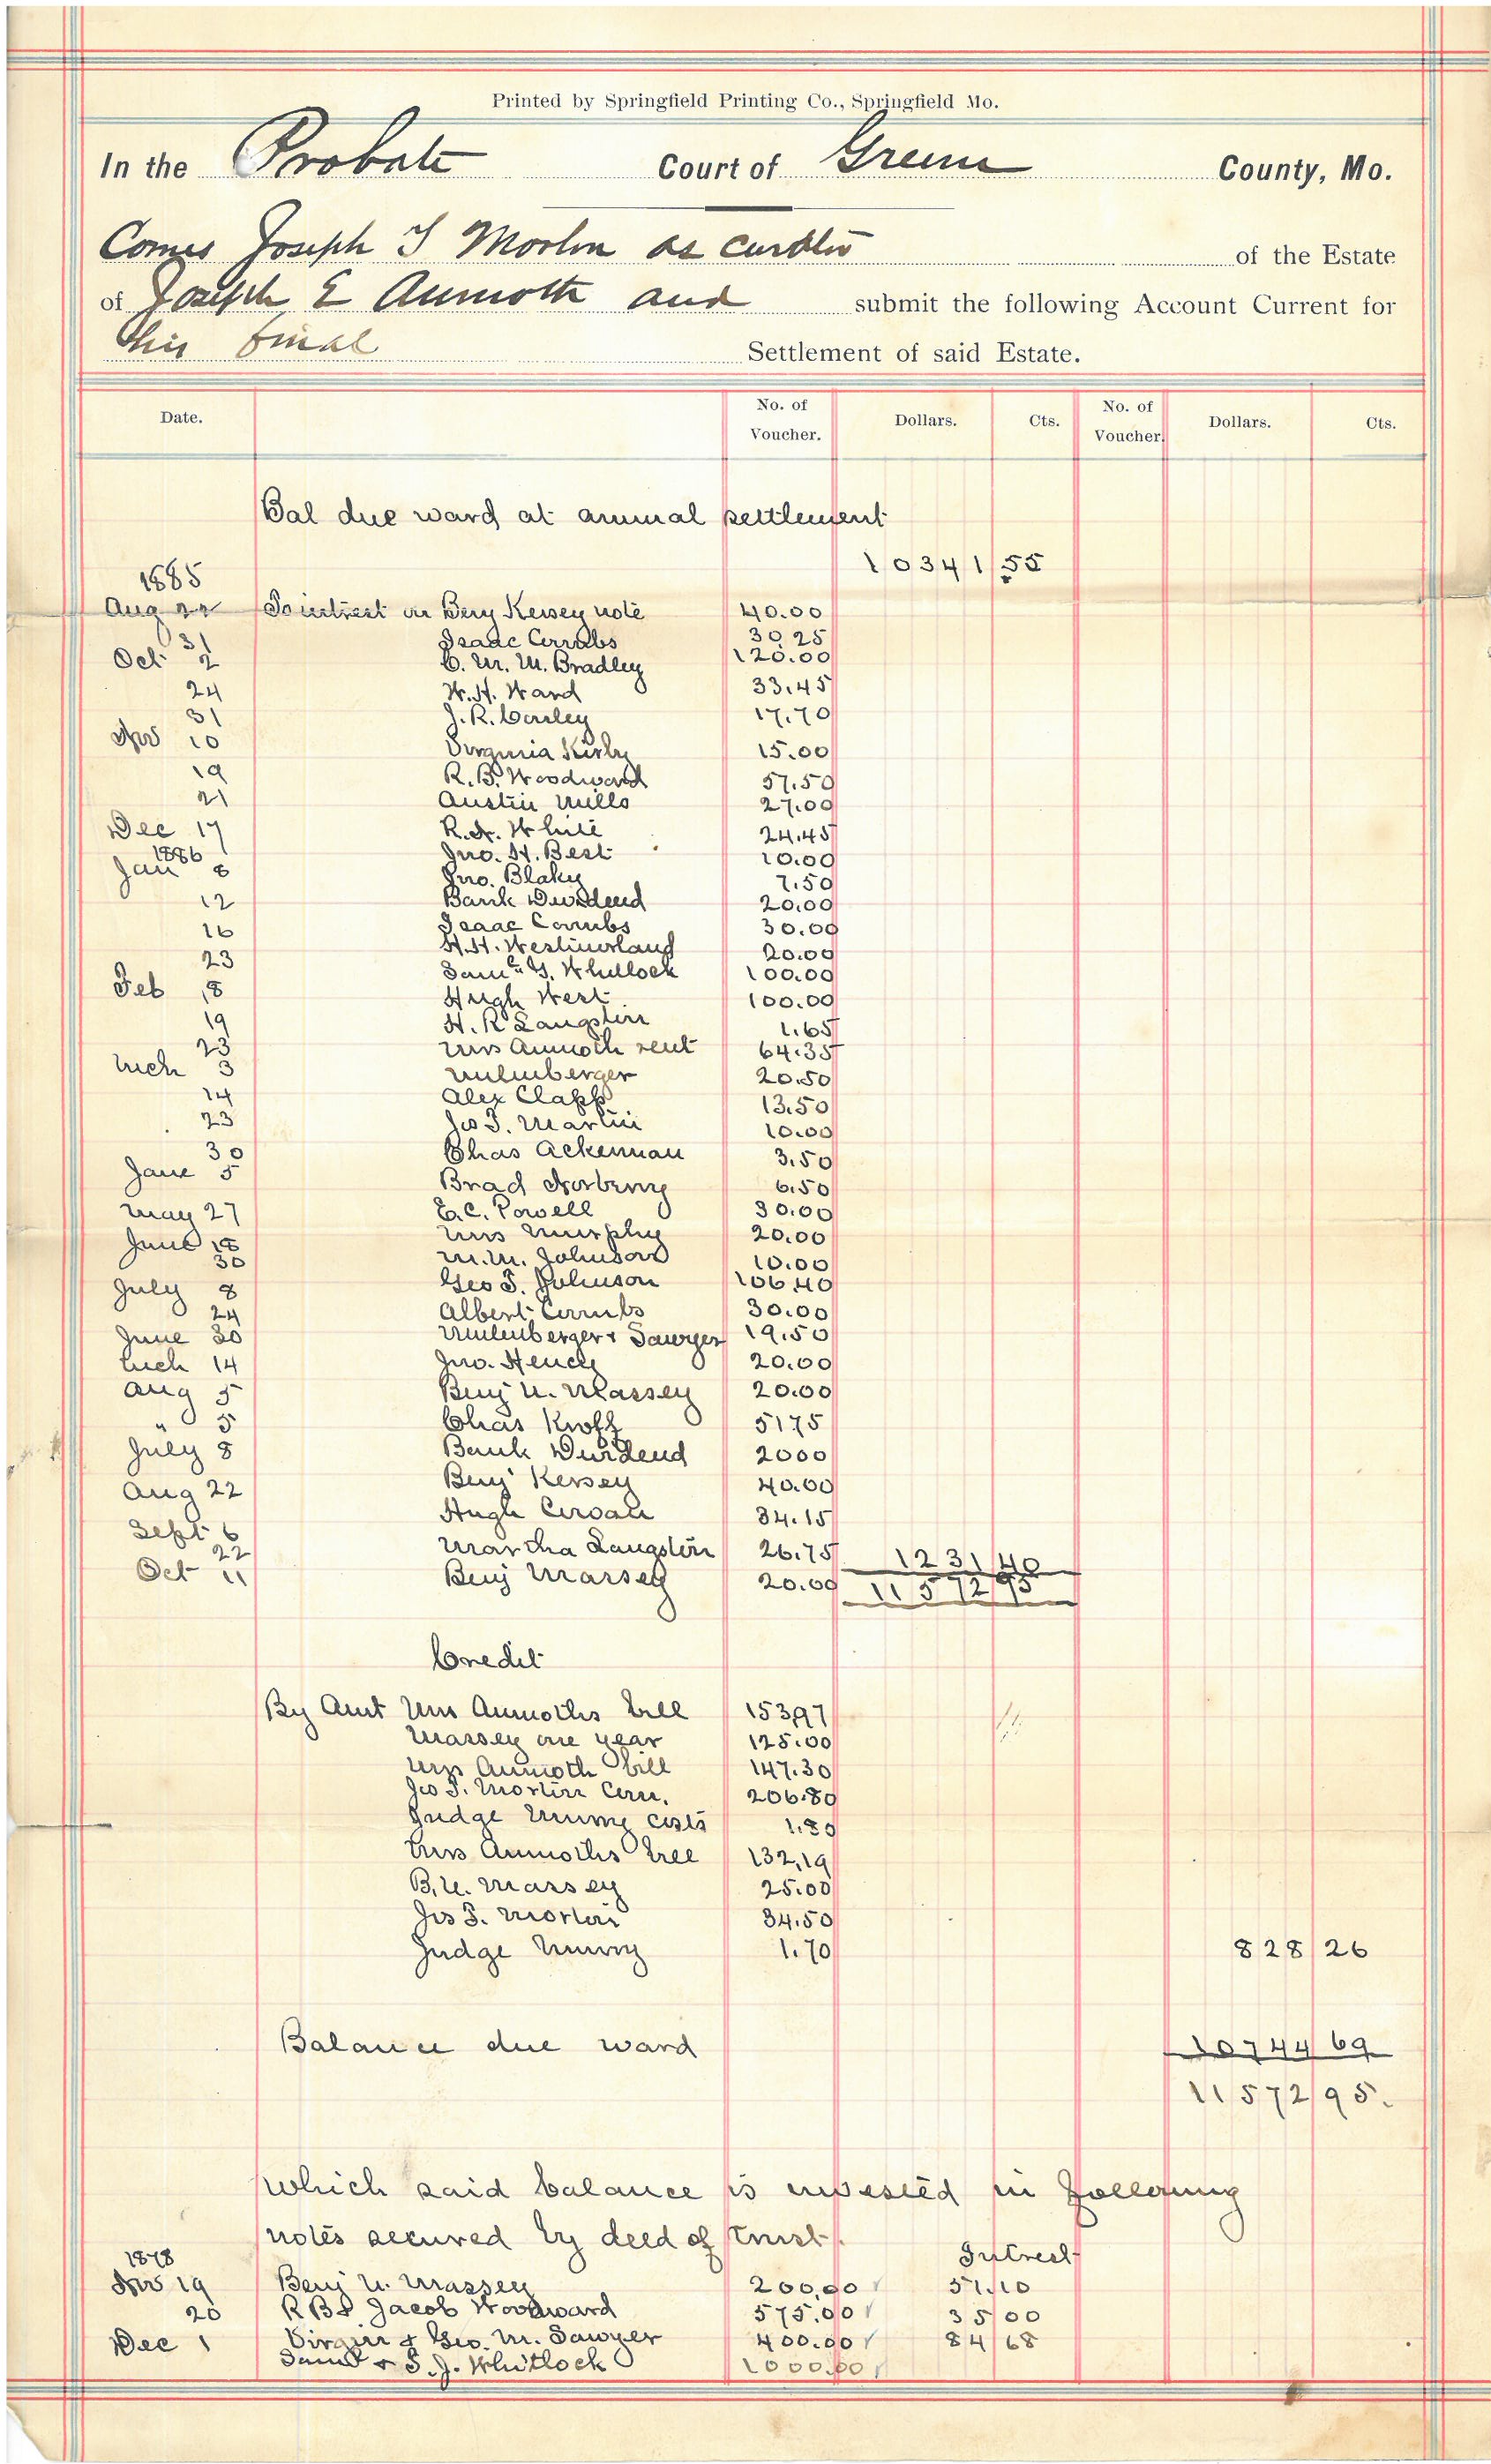 Printed by Springfield Printing Co., Springfield Mo.
In the Probate Court of Greene County, Mo.
Comes Joseph T Morton as curator of the Estate
of Joseph E Aumoth and submit the following Account Current for
this final Settlement of said Estate.
Date. No. of Voucher. Dollars. Cts. No. of Voucher. Dollars. Cts.
Bal due ward at annual settlement
10341 55
1885
Aug 22 To intrest on Benj Kersey note 40.00
31 Isaac Combs 30.25
Oct 2 C. M. M. Bradley 120.00
24 W. H. Ward 33.45
31 J. R. Conley 17.70
Nov 10 Virginia Kirby 15.00
19 R. B. Woodward 57.50
21 Austin Mills 27.00
Dec 17 R. A. White 24.45
1886 Jno. H. Best 10.00
Jan 8 Jno. Blakey 7.50
12 Bank Dividend 20.00
16 Isaac Combs 30.00
H. H. Westmorland 20.00
23 Saml G. Whitlock 100.00
Feb 18 Hugh West 100.00
19 H. R Langston 1.65
23 Mrs Aumoth rent 64.35
Mch 3 Milenberger 20.50
14 Alex Clapp 13.50
23 Jos T. Martin 10.00
30 Chas Ackerman 3.50
Jane 5 Brad 6.50
May 27 E. C. Powell 30.00
June 18 Mrs Murphy 20.00
30 M. M. Johnson 10.00
July 8 Geo T. Johnson 106.40
24 Albert Combs 30.00
June 30 Milenberger & Sawyer 19.50
Mch 14 Jno. 20.00
Aug 5 Benj U. Massey 20.00
" 5 Chas 51.75
July 8 Bank Dividend 2000
Aug 22 Benj Kersey 40.00
Sept 6 Hugh 34.15
22 Martha Langston 26.75 1231 40
Oct 11 Benj Massey 20.00 11572 95
Credit
By Amt Mrs Aumoths bill 153.97
Massey one year 125.00
Mrs Aumoth bill 147.30
Jos T. Morton Com. 206.80
Judge costs 1.80
Mrs Aumoths bill 132.19
B. U. Massey 25.00
Jos T. Morton 34.50
Judge 1.70 828 26
Balance due ward 10744 69
11572 95.
which said balance is invested in following
notes secured by deed of trust.
1878 Intrest
Nov 19 Benj U. Massey 200.00 51.10
20 R B & Jacob Woodward 575.00 35 00
Dec 1 Virgin & Geo. M. Sawyer 400.00 84 68
Saml & S. J. Whitlock 1000.00